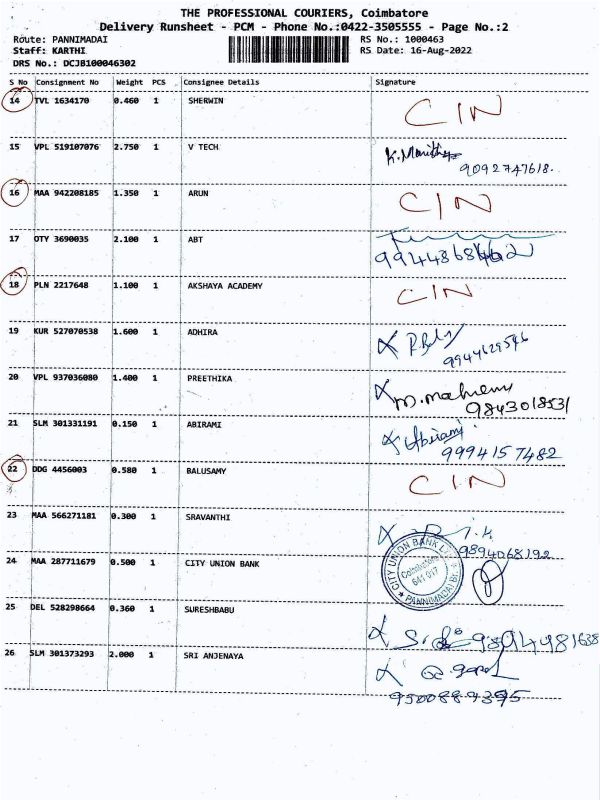 THE PROFESSIONAL COURIERS, Coimbatore
Delivery Runsheet - PCM - Phone No.:0422-3505555 - Page No.:2
Route: PANNIMADAI RS No.: 1000463
Staff: KARTHI RS Date: 16-Aug-2022
DRS No.: DCJB100046302
S No Consignment No Weight PCS Consignee Details Signature
14 TVL 1634170 0.460 1 SHERWIN CIN
15 VPL 519107076 2.750 1 V TECH
9092747618.
16 MAA 942208185 1.350 1 ARUN CIN
17 OTY 3690035 2.100 1 ABT
18 PLN 2217648 1.100 1 AKSHAYA ACADEMY CIN
19 KUR 527070538 1.600 1 ADHIRA
9944629546
20 VPL 937036080 1.400 1 PREETHIKA
9843018531
21 SLM 301331191 0.150 1 ABIRAMI Abirami
9994157482
22 DDG 4456003 0.580 1 BALUSAMY CIN
23 MAA 566271181 0.300 1 SRAVANTHI
9894068192
24 MAA 287711679 0.500 1 CITY UNION BANK
CITY UNION BANK
Coimbatore
641 017
PANNIMADAI Br.
25 DEL 528298664 0.360 1 SURESHBABU
26 SLM 301373293 2.000 1 SRI ANJENAYA
9500889395